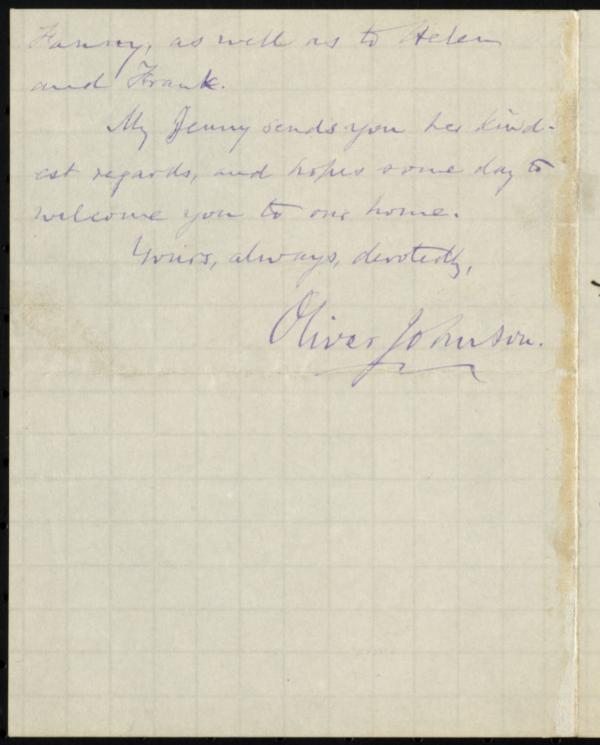 Fanny, as well as to Helen
and Frank.
My Jenny sends you her kind-
est regards, and hopes some day to
welcome you to our home.
Yours, always, devotedly,
Oliver Johnson.